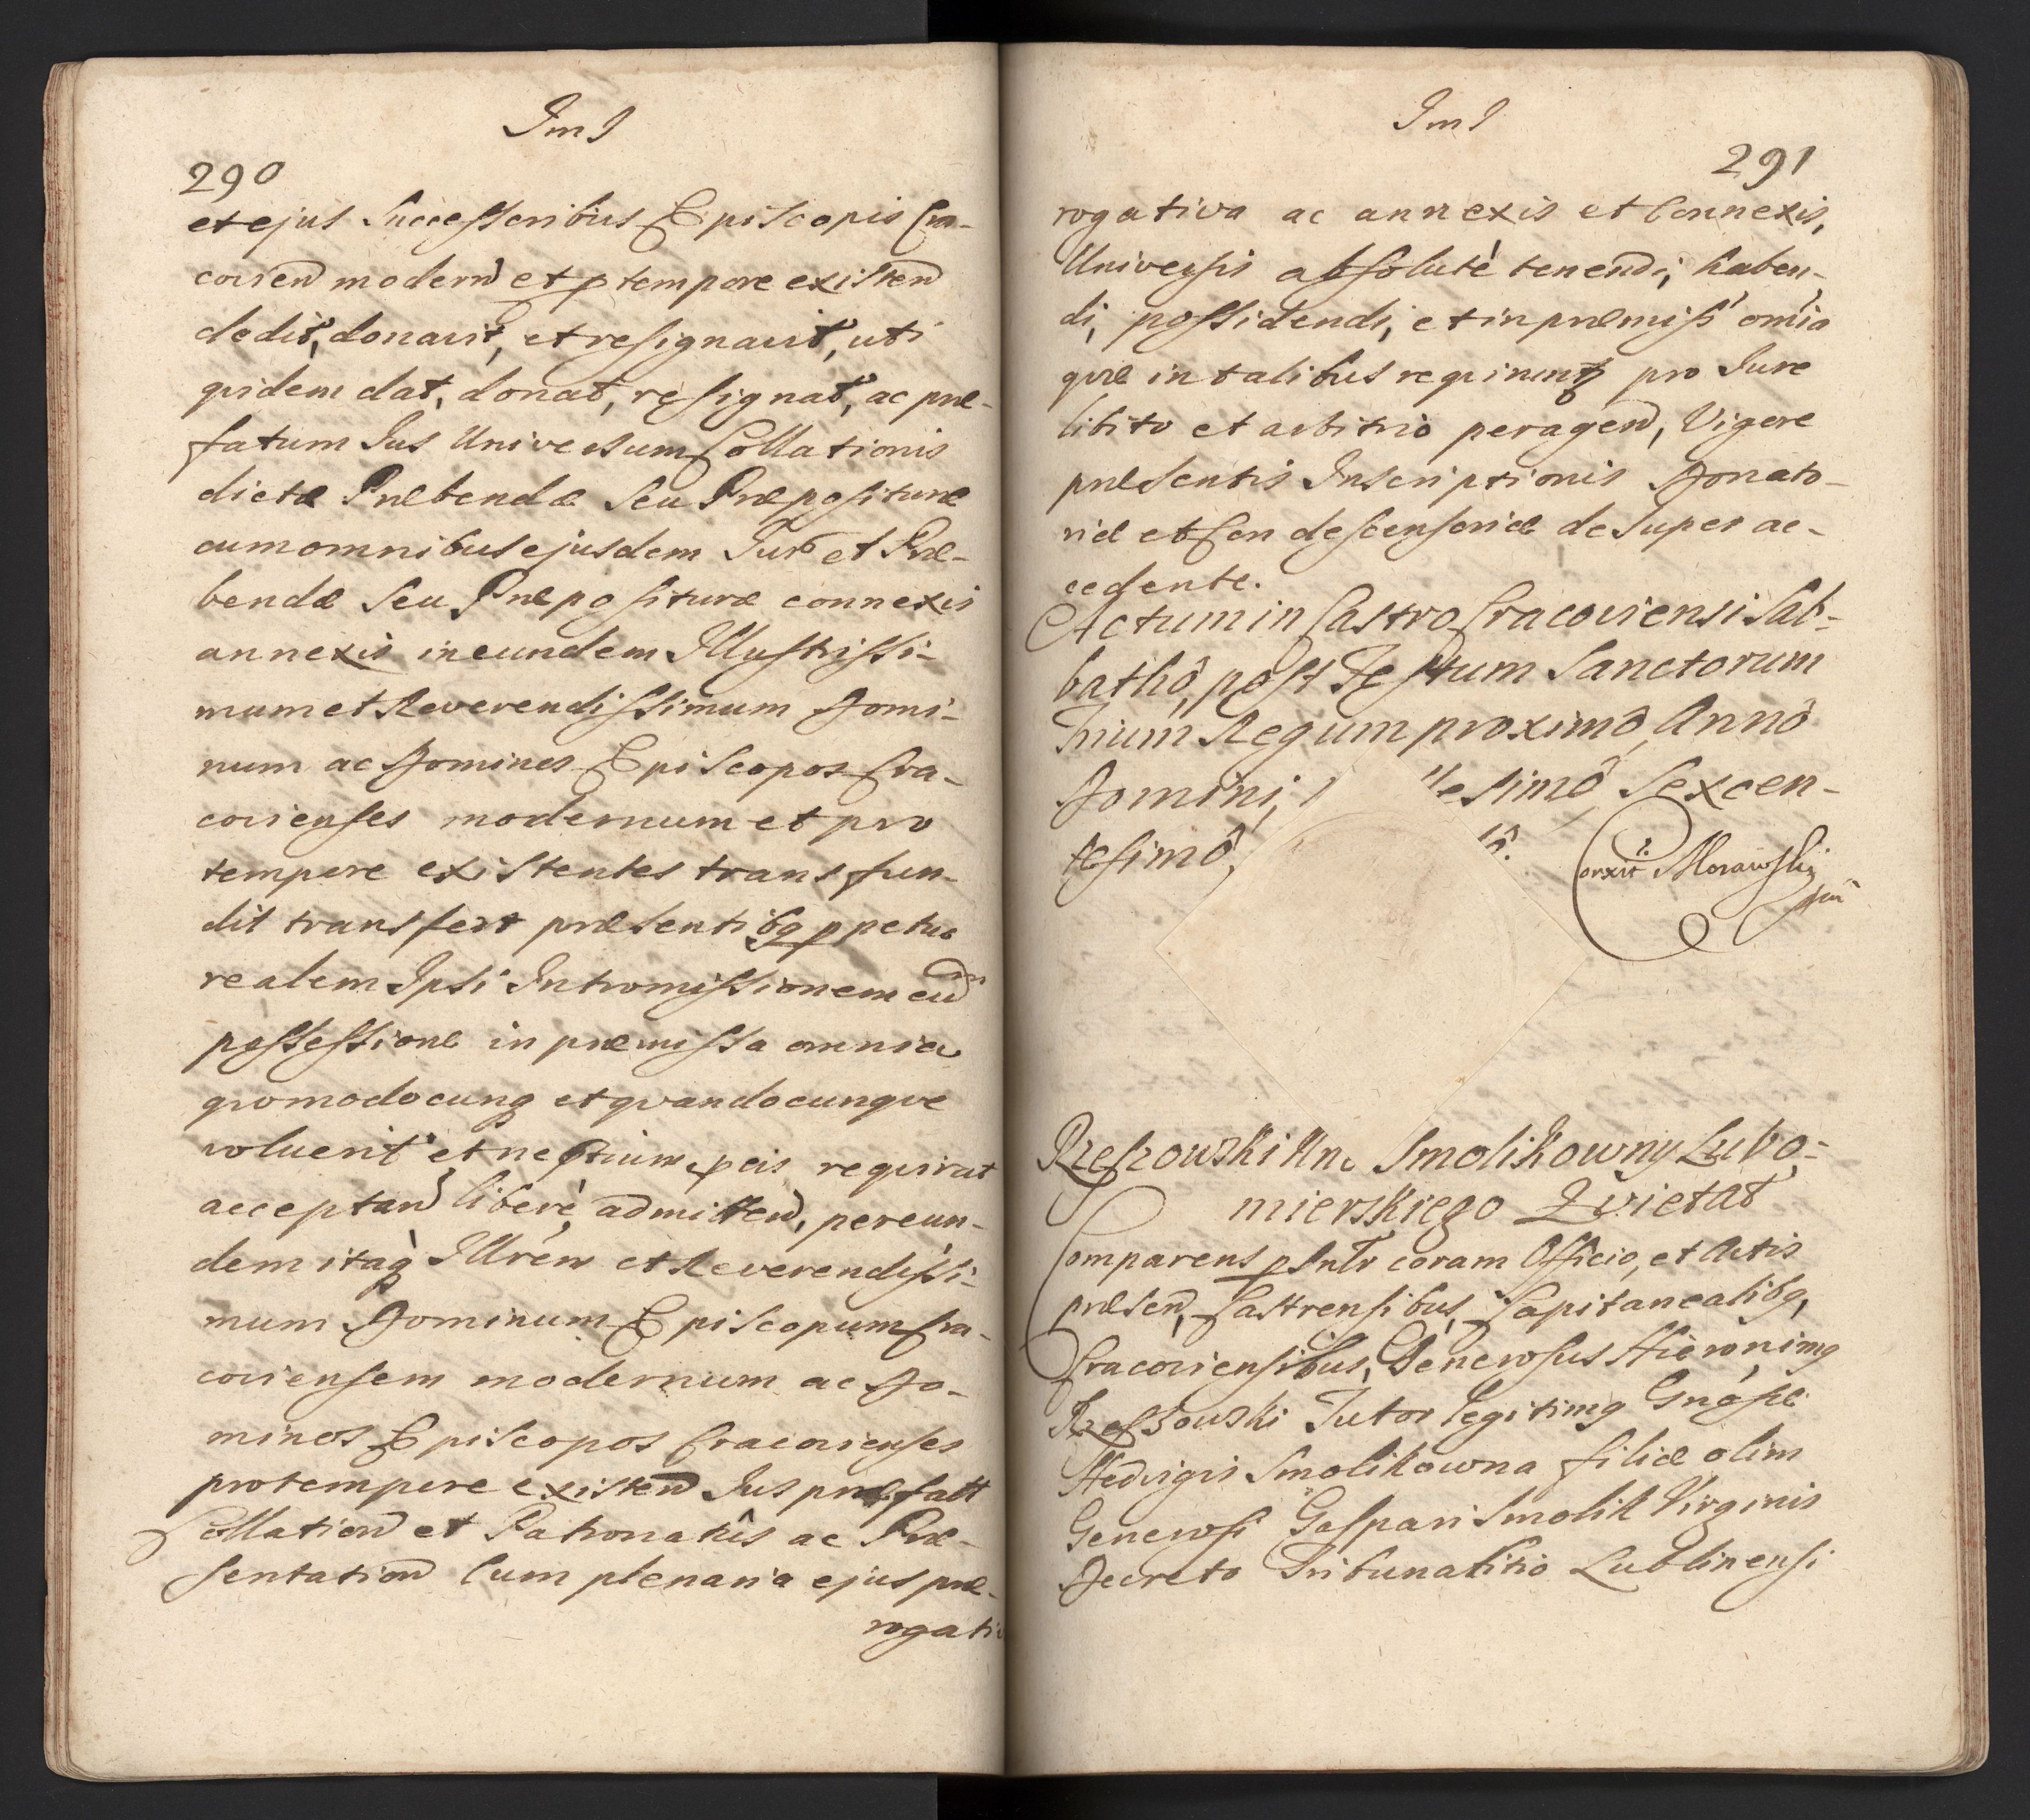 ImI
290
et ejus Successoribus Episcopis Cra-
covien modern et p tempore existen
dedit, donavit, et resignavit, uti
qvidem dat, donat, resignat, ac præ-
fatum Jus Universum Collationis
dictæ Præbendæ Seu Præpositure
cum omnibus ejusdem Jur et Præ-
bendæ Seu Præposituræ connexis
annexis in eundem Illustrissi-
mum et Reverendissimum Domi-
num ac Dominos Episcopos Cra-
covienses modernum et pro
tempore existentes transfun-
dit transfert præsentibq ppetuo
realem Ipsi Intromissionem cu
possessione in præmissa omnia
qvomodocunq et qvandocunqve
voluerit et negotium reqvirat
acceptan liberè admitten, per eun-
dem itaq Illrem et Reverendissi-
mum Dominum Episcopum Cra-
coviensem modernum ac Do-
minos Episcopos Cracovienses
pro tempore existen Jus præfatt
Collation et Patronatûs ac Præ-
sentation Cum plenaria ejus præ-
rogati
ImI
291
rogativa ac annexis et Connexis,
Universis absolutè tenendi, haben-
di, possidendi, et in præmiss omia
qvæ in talibus reqirunt pro Jure
libito et arbitriò peragen, Vigore
præsentis Inscriptionis Donato-
riæ et Condescensoriæ desuper ac-
cedente.
Actum in Castro Cracoviensi Sab-
bathô, post Festum Sanctorum
Trium Regum proximô, Annô
Domini, lesimô, Sexcen-
tesimô, tô.
Corxit Morawski
Rzeszowski Smolikowny Lubo-
mierskiego Qvietat
Comparens psnlr coram Officio, et Actis
præsen, Castrensibus, Capitanealibq,
Cracoviensibus, Generosus Hieronimq
Rzeszowski Tutor legitimq Gnosæ
Hedvigis Smolikowna filiæ olim
Generosi Gaspari Smolik Virginis
Decreto Tribunalitio Lublinensi